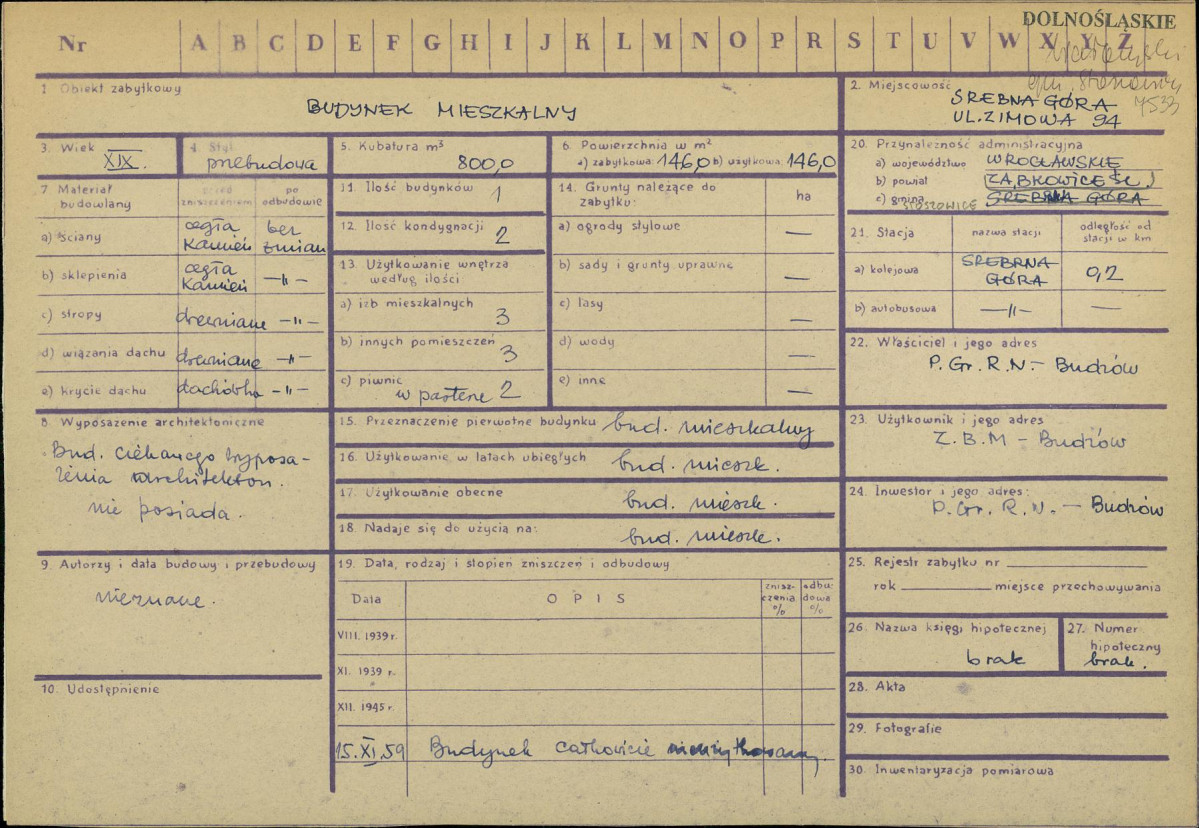 DOLNOŚLĄSKIE
Nr A B C D E F G H I J K L M N O P R S T U V W X Y Z
gm.
1. Obiekt zabytkowy
BUDYNEK MIESZKALNY
2. Miejscowość
SREBNA GÓRA
UL. ZIMOWA 94
3. Wiek
XIX.
4. Styl
przebudowa
5. Kubatura m³
800,0
6. Powierzchnia w m²
a) zabytkowa: 146,0 b) użytkowa: 146,0
7 Materiał budowlany
przed zniszczeniem
po odbudowie
a) ściany cegła kamień bez zmian
b) sklepienia cegła kamień —"—
c) stropy drewniane —"—
d) wiązania dachu drewniane —"—
e) krycie dachu dachówka —"—
8. Wyposażenie architektoniczne
Bud. ciekawego wyposa-
żenia architekton.
nie posiada.
9. Autorzy i data budowy i przebudowy
nieznane.
10. Udostępnienie
11. Ilość budynków 1
12. Ilość kondygnacji 2
13. Użytkowanie wnętrza
według ilości
a) izb mieszkalnych 3
b) innych pomieszczeń 3
c) piwnic
w parterze 2
14. Grunty należące do
zabytku: ha
a) ogrody stylowe —
b) sady i grunty uprawne —
c) lasy —
d) wody —
e) inne —
15. Przeznaczenie pierwotne budynku bud. mieszkalny
16. Użytkowanie w latach ubiegłych bud. mieszk.
17. Użytkowanie obecne bud. mieszk.
18. Nadaje się do użycia na: bud. mieszk.
19. Data, rodzaj i stopień zniszczeń i odbudowy
Data OPIS znisz-czenia % odbu-dowa %
VIII. 1939 r.
XI. 1939 r.
XII. 1945 r.
15.XI.59 Budynek całkowicie nieużytkowany.
20. Przynależność administracyjna
a) województwo WROCŁAWSKIE
b) powiat ZĄBKOWICE ŚL.
c) gmina SREBRNA GÓRA
STOSZOWICE
21. Stacja nazwa stacji odległość od stacji w km
a) kolejowa SREBRNA GÓRA 0,2
b) autobusowa —"— —
22. Właściciel i jego adres
P. Gr. R. N. – Budzów
23. Użytkownik i jego adres
Z. B. M – Budzów
24. Inwestor i jego adres:
P. Gr. R. N. – Budzów
25. Rejestr zabytku nr
rok miejsce przechowywania
26. Nazwa księgi hipotecznej
brak
27. Numer hipoteczny
brak.
28. Akta
29. Fotografie
30. Inwentaryzacja pomiarowa